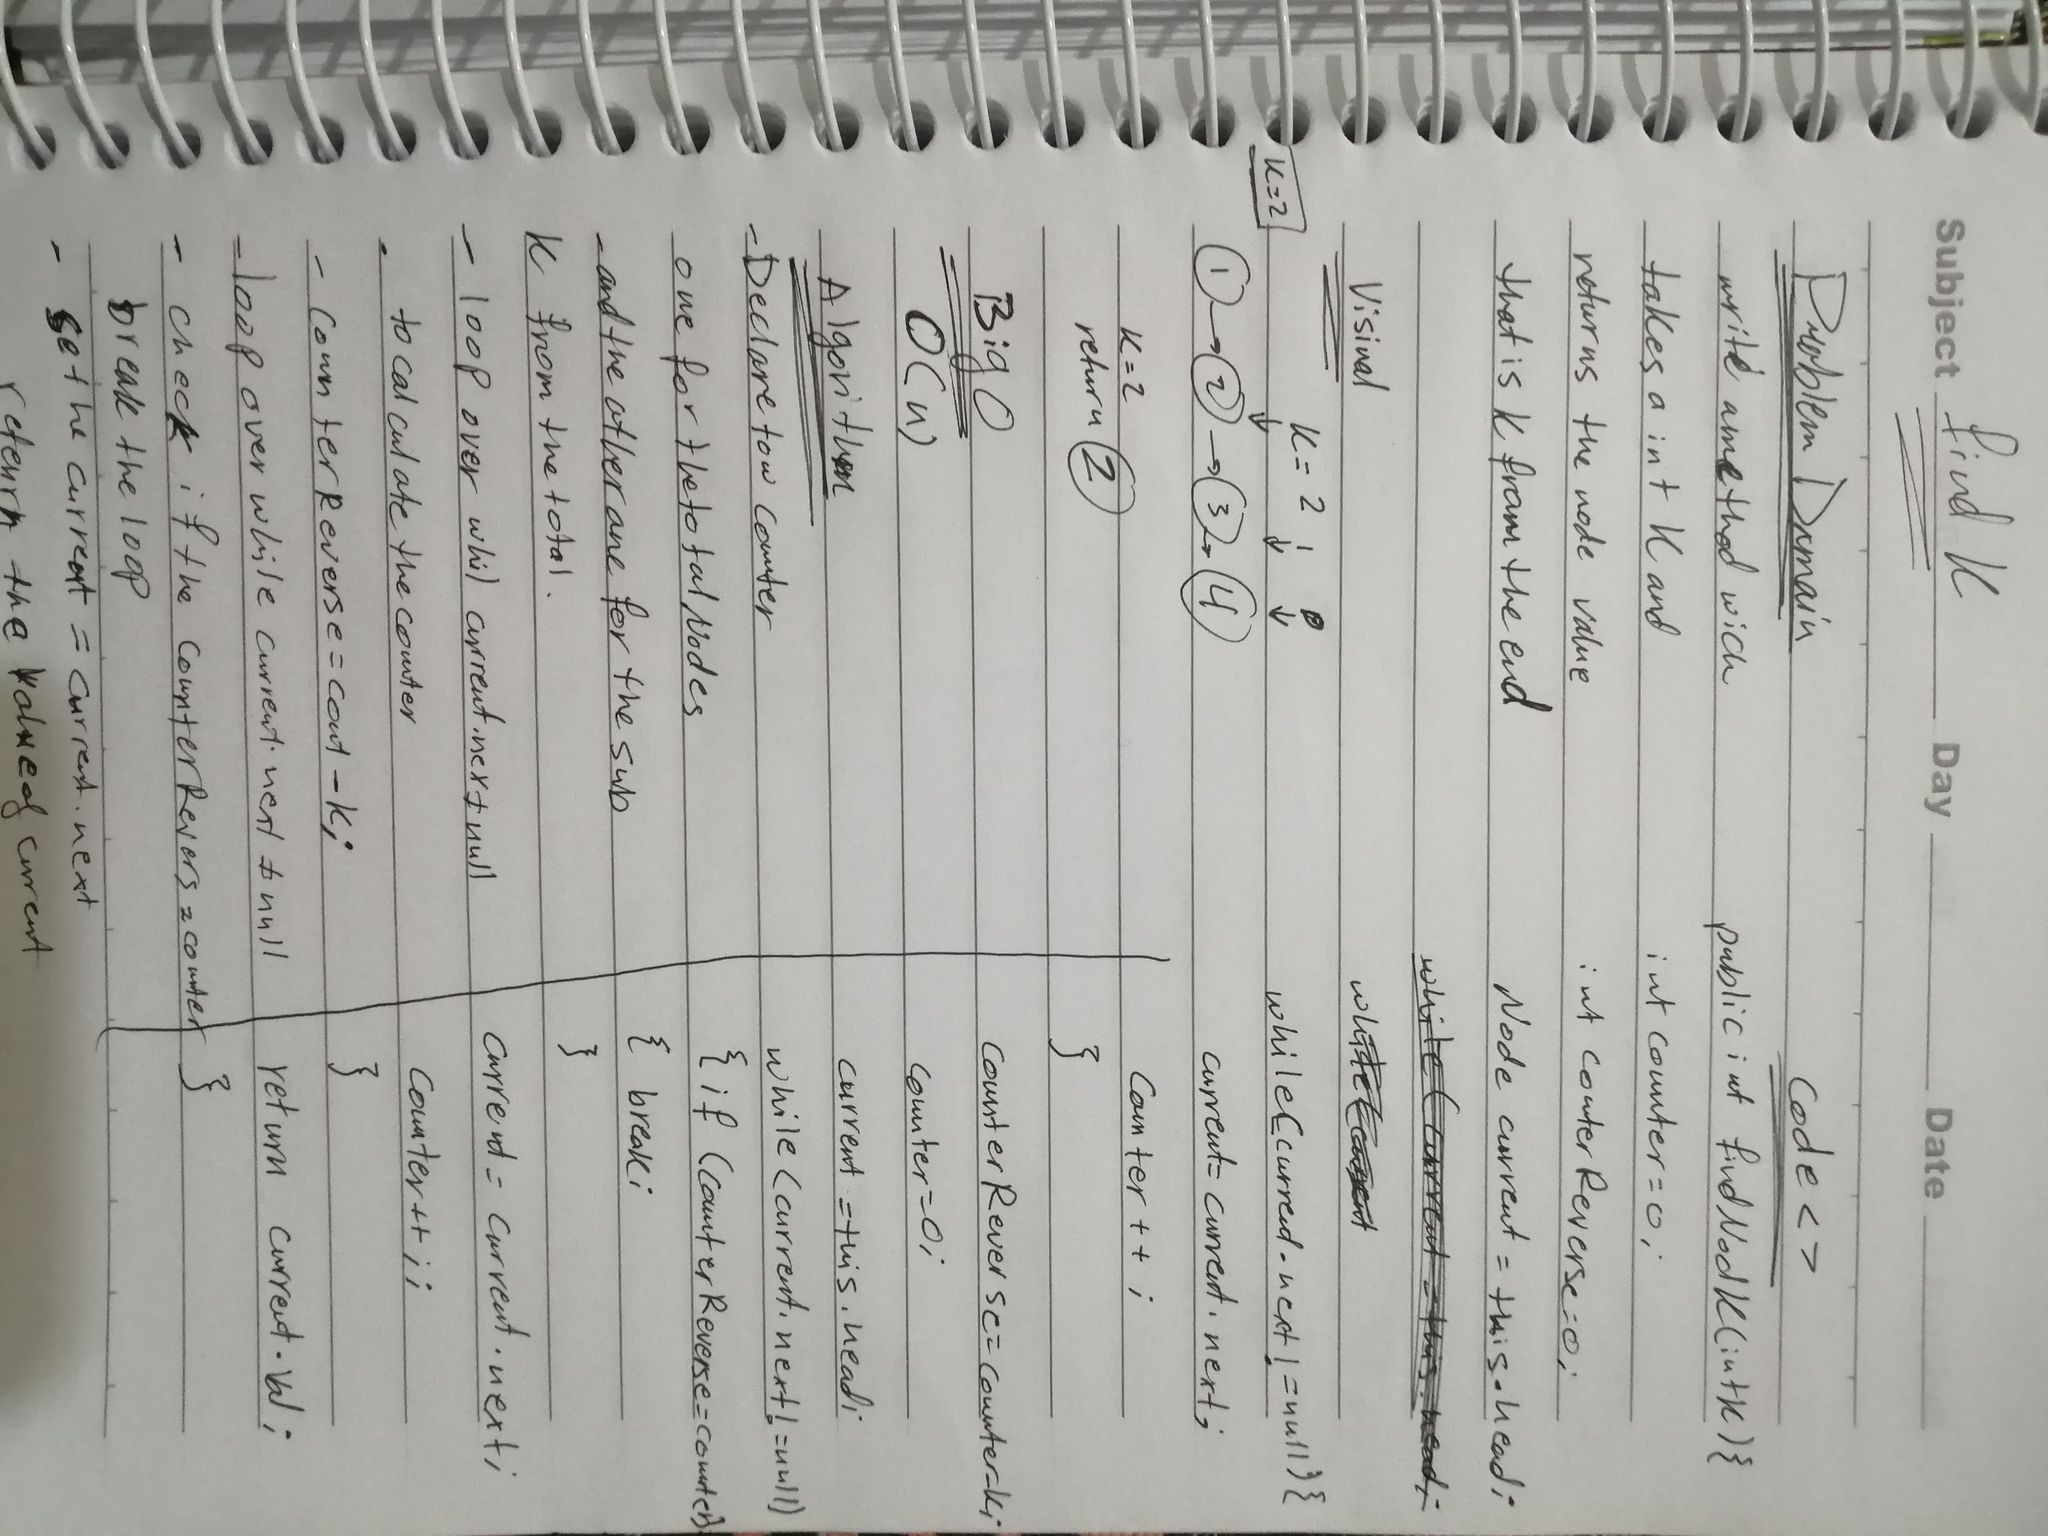 Subject find K Day Date
Problem Domain
write amethod wich
takes a int K and
returns the node value
that is K from the end
Visiual
K=2
K=2 1 0
1 → 2 → 3 → 4
K=2
return 2
Big O
O(n)
Algorithm
- Declare tow counter
one for the total Nodes
- and the other ane for the sub
K from the total.
- loop over whil current.next ≠ null
to calculate the counter
- Counter Reverse = cout - K;
- loop over while current.next ≠ null
- check if the counter Revers = counter
break the loop
- set he current = current.next
return the valued current
Code < >
public int findNodK(int K){
int counter = 0;
int couterReverse = 0;
Node current = this.head;
while(current = this.head;
while(current
while(current.next != null){
current = current.next;
Counter ++;
}
CounterReverse = Counter - K;
Counter = 0;
current = this.head;
while(current.next != null)
{ if (CounterReverse = counter)
{ break;
}
Current = current.next;
Counter ++;
}
return current.val;
}